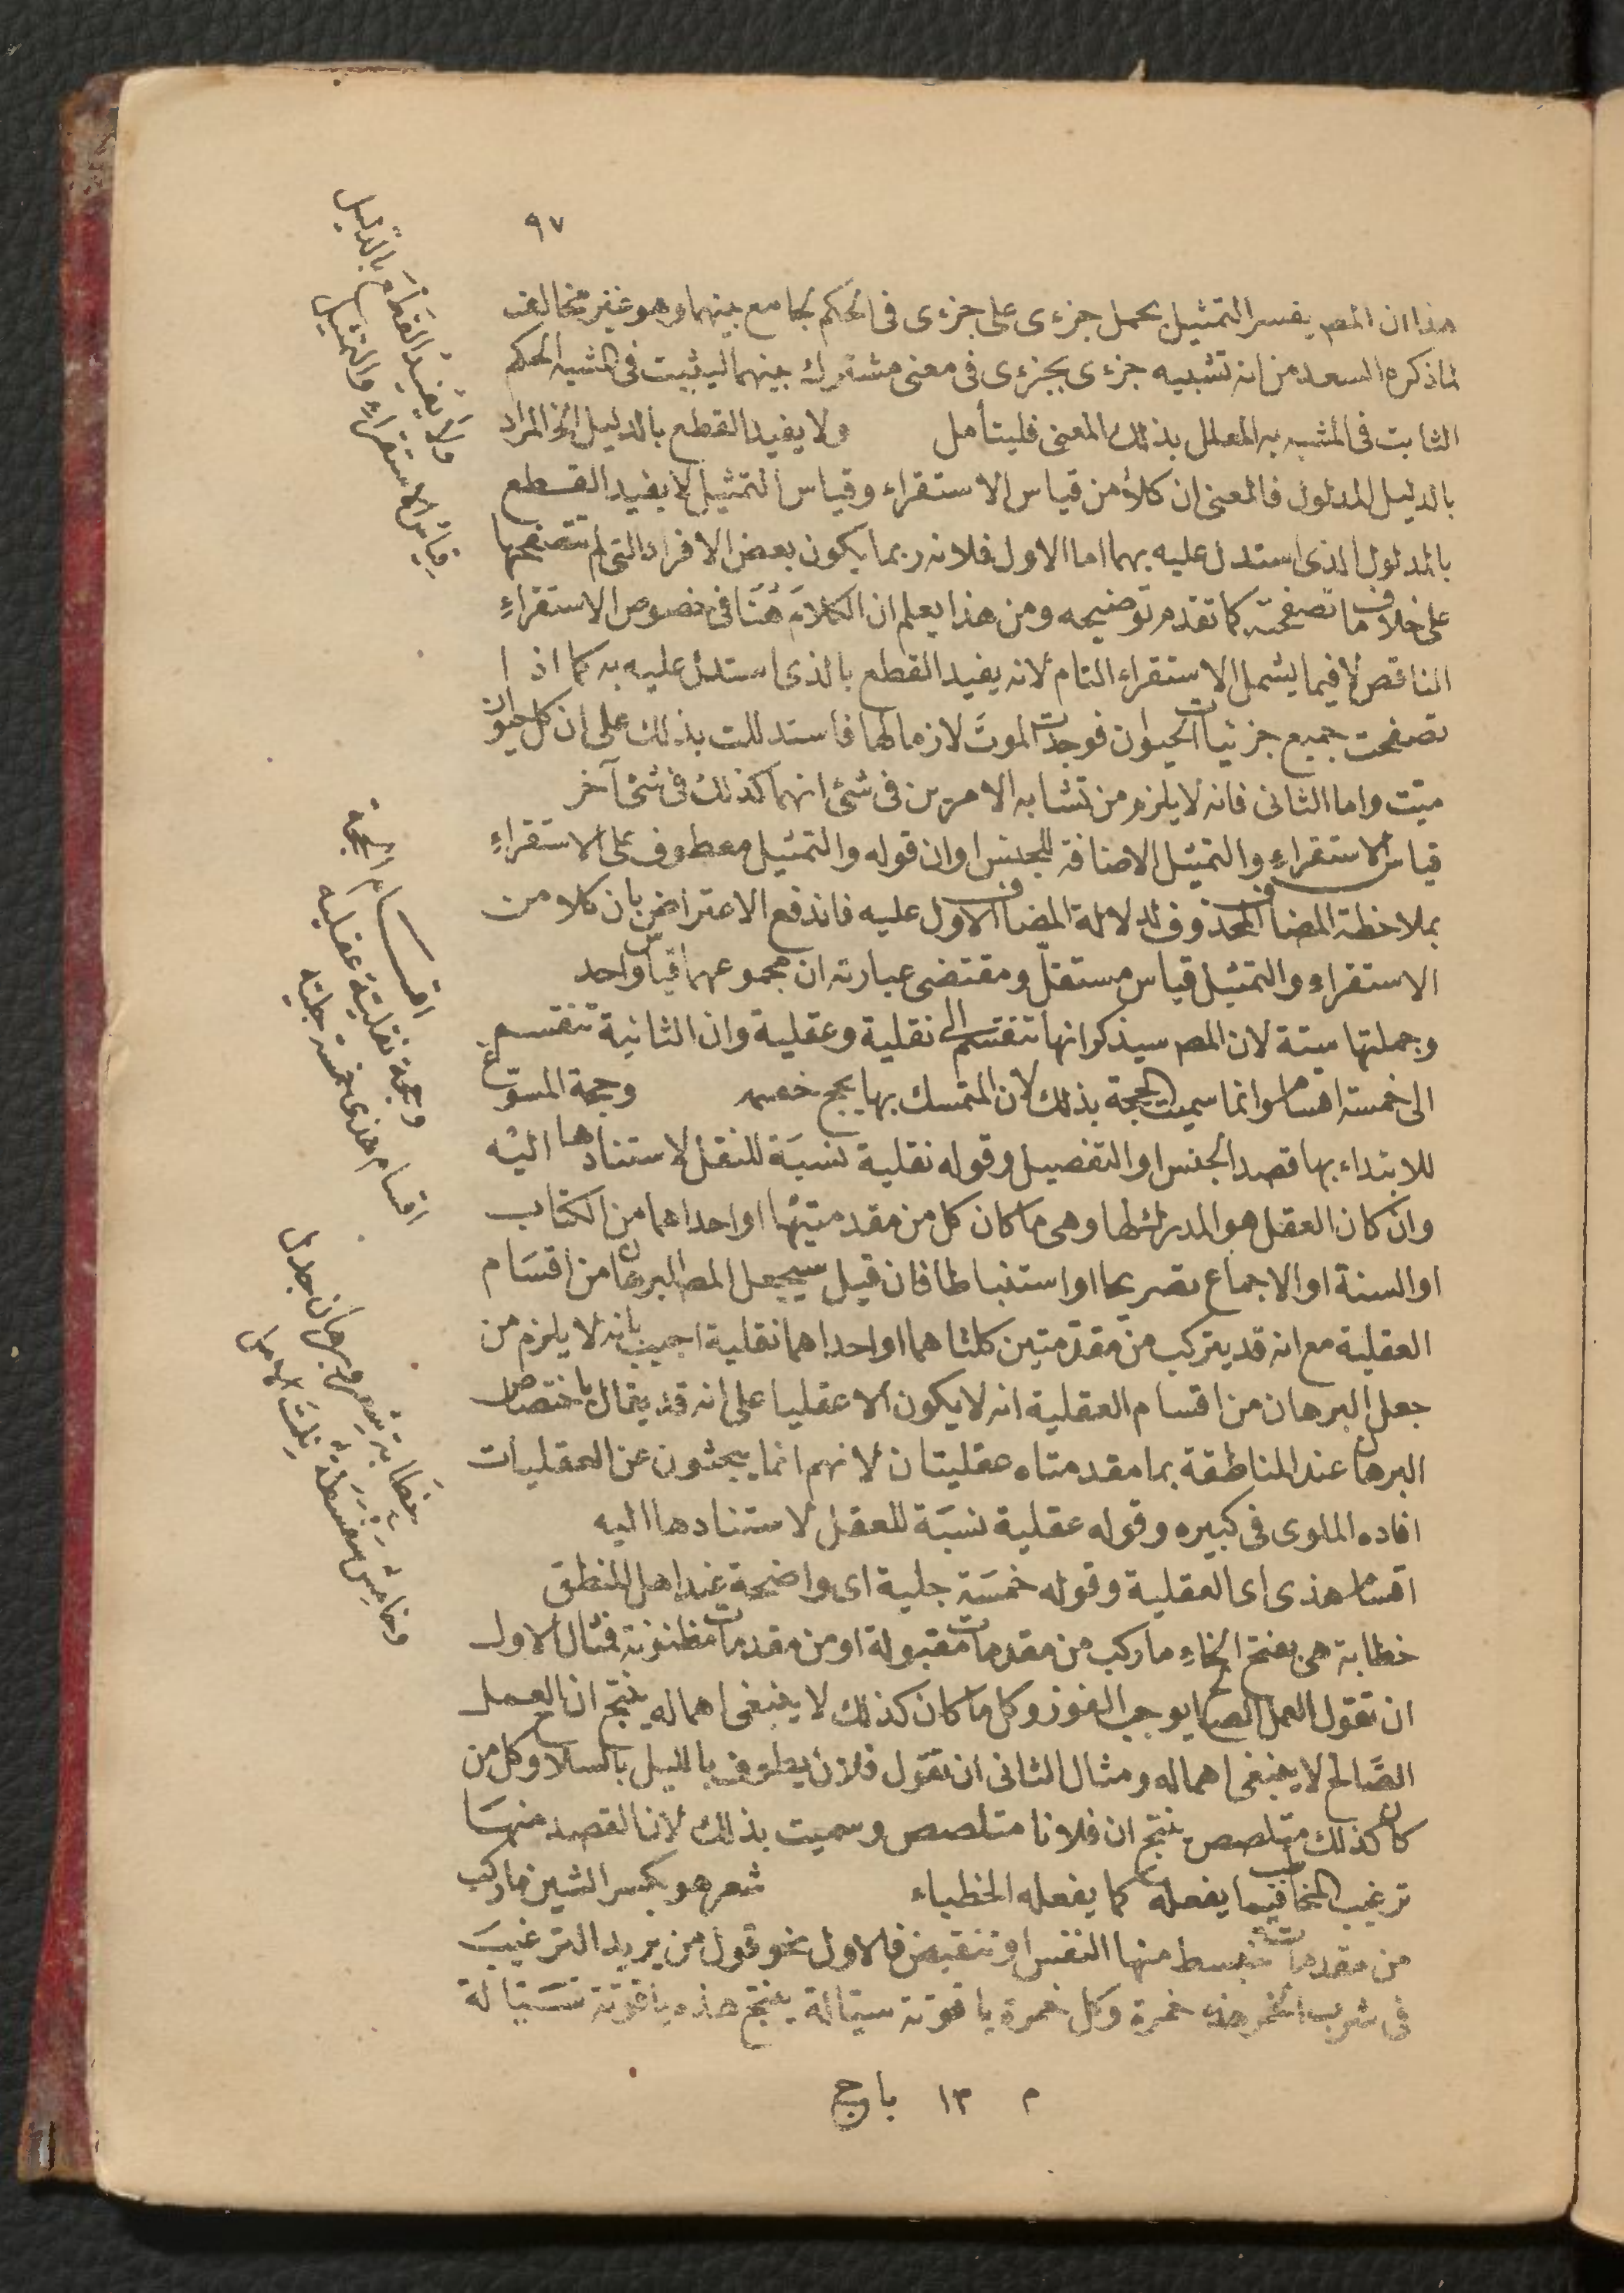 ٩٧
هذا ان المصـ يفسر التمثيل بحمل جزءى على جزءى فى الحكم بجامع بينهما وهو غير مخالف
لما ذكره السعد من انه تشبيه جزءى بجزءى فى معنى مشترك بينهما ليثبت فى المشبه الحكم
الثابت فى المشبه به المعلل بذلك المعنى فليتأمل ولا يفيد القطع بالدليل الخ المراد
بالدليل المدلول فالمعنى ان كلاّ من قياس الاستقراء وقياس التمثيل لا يفيد القطع
بالمدلول الذى استدل عليه بهما اما الاول فلانه ربما يكون بعض الافراد التى لم تتصفحها
على خلاف ما تصفحته كما تقدم توضيحه ومن هذا يعلم ان الكلام هنا فى خصوص الاستقراء
الناقص لا فيما يشمل الاستقراء التام لانه يفيد القطع بالذى استدل عليه به كما اذا
تصفحت جميع جزئيات الحيوان فوجدت الموت لازما لها فاستدللت بذلك على ان كل حيوان
ميّت واما الثانى فانه لا يلزم من تشابه الامرين فى شئ انهما كذلك فى شئ آخر
قياس الاستقراء والتمثيل الاضافة للجنس او ان قوله والتمثيل معطوف على الاستقراء
بملاحظة المضاف المحذوف لدلالة المضاف الاول عليه فاندفع الاعتراض بان كلا من
الاستقراء والتمثيل قياس مستقل ومقتضى عبارته ان مجموعهما قياس واحد
وجملتها ستة لان المصـ سيذكر انها تنقسم الى نقلية وعقلية وان الثانية تنقسم
الى خمسة اقسام وانما سميت الحجة بذلك لان المتمسك بها يحج خصمه وحجة المسوّغ
للابتداء بها قصد الجنس او التفصيل وقوله نقلية نسبة للنقل لاستنادها اليه
وان كان العقل هو المدرك لها وهى ما كان كل من مقدمتيها او احداهما من الكتاب
او السنة او الاجماع تصريحا او استنباطا فان قيل سيجعل المصـ البرهان من اقسام
العقلية مع انه قد يتركب من مقدّمتين كلتاهما او احداهما نقلية اجيب بانه لا يلزم من
جعل البرهان من اقسام العقلية انه لا يكون الا عقليا على انه قد يقال باختصاص
البرهان عند المناطقة بما مقدمتاه عقليتان لانهم انما يبحثون عن العقليات
افاده الملوى فى كبيره وقوله عقلية نسبة للعقل لاستنادها اليه
اقسام هذى اى العقلية وقوله خمسة جلية اى واضحة عند اهل المنطق
خطابة هى بفتح الخاء ما ركب من مقدمات مقبولة او من مقدمات مظنونة فمثال الاول
ان تقول العمل الصالح يوجب الفوز وكل ما كان كذلك لا ينبغى اهماله ينتج ان العمل
الصّالح لا ينبغى اهماله ومثال الثانى ان تقول فلان يطوف بالليل بالسلاح وكل من
كان كذلك متلصص ينتج ان فلانا متلصص وسميت بذلك لان القصد منها
ترغيب المخاطب فيما يفعله كما يفعله الخطباء شعر هو بكسر الشين ما ركب
من مقدمات تنبسط منها النفس او تنقبض فالاول نحو قول من يريد الترغيب
فى شرب الخمر هذه خمرة وكل خمرة ياقوتة سيالة ينتج هذه ياقوتة سيّالة
م ١٣ باج
ولا يفيد القطع بالدليل
قياس الاستقراء والتمثيل
اقسام الحجة
وحجة نقلية عقليه
اقسام هذى خمسة جليّه
خطابة شعر وبرهان جدل
وخامس سفسطة نلت الامل